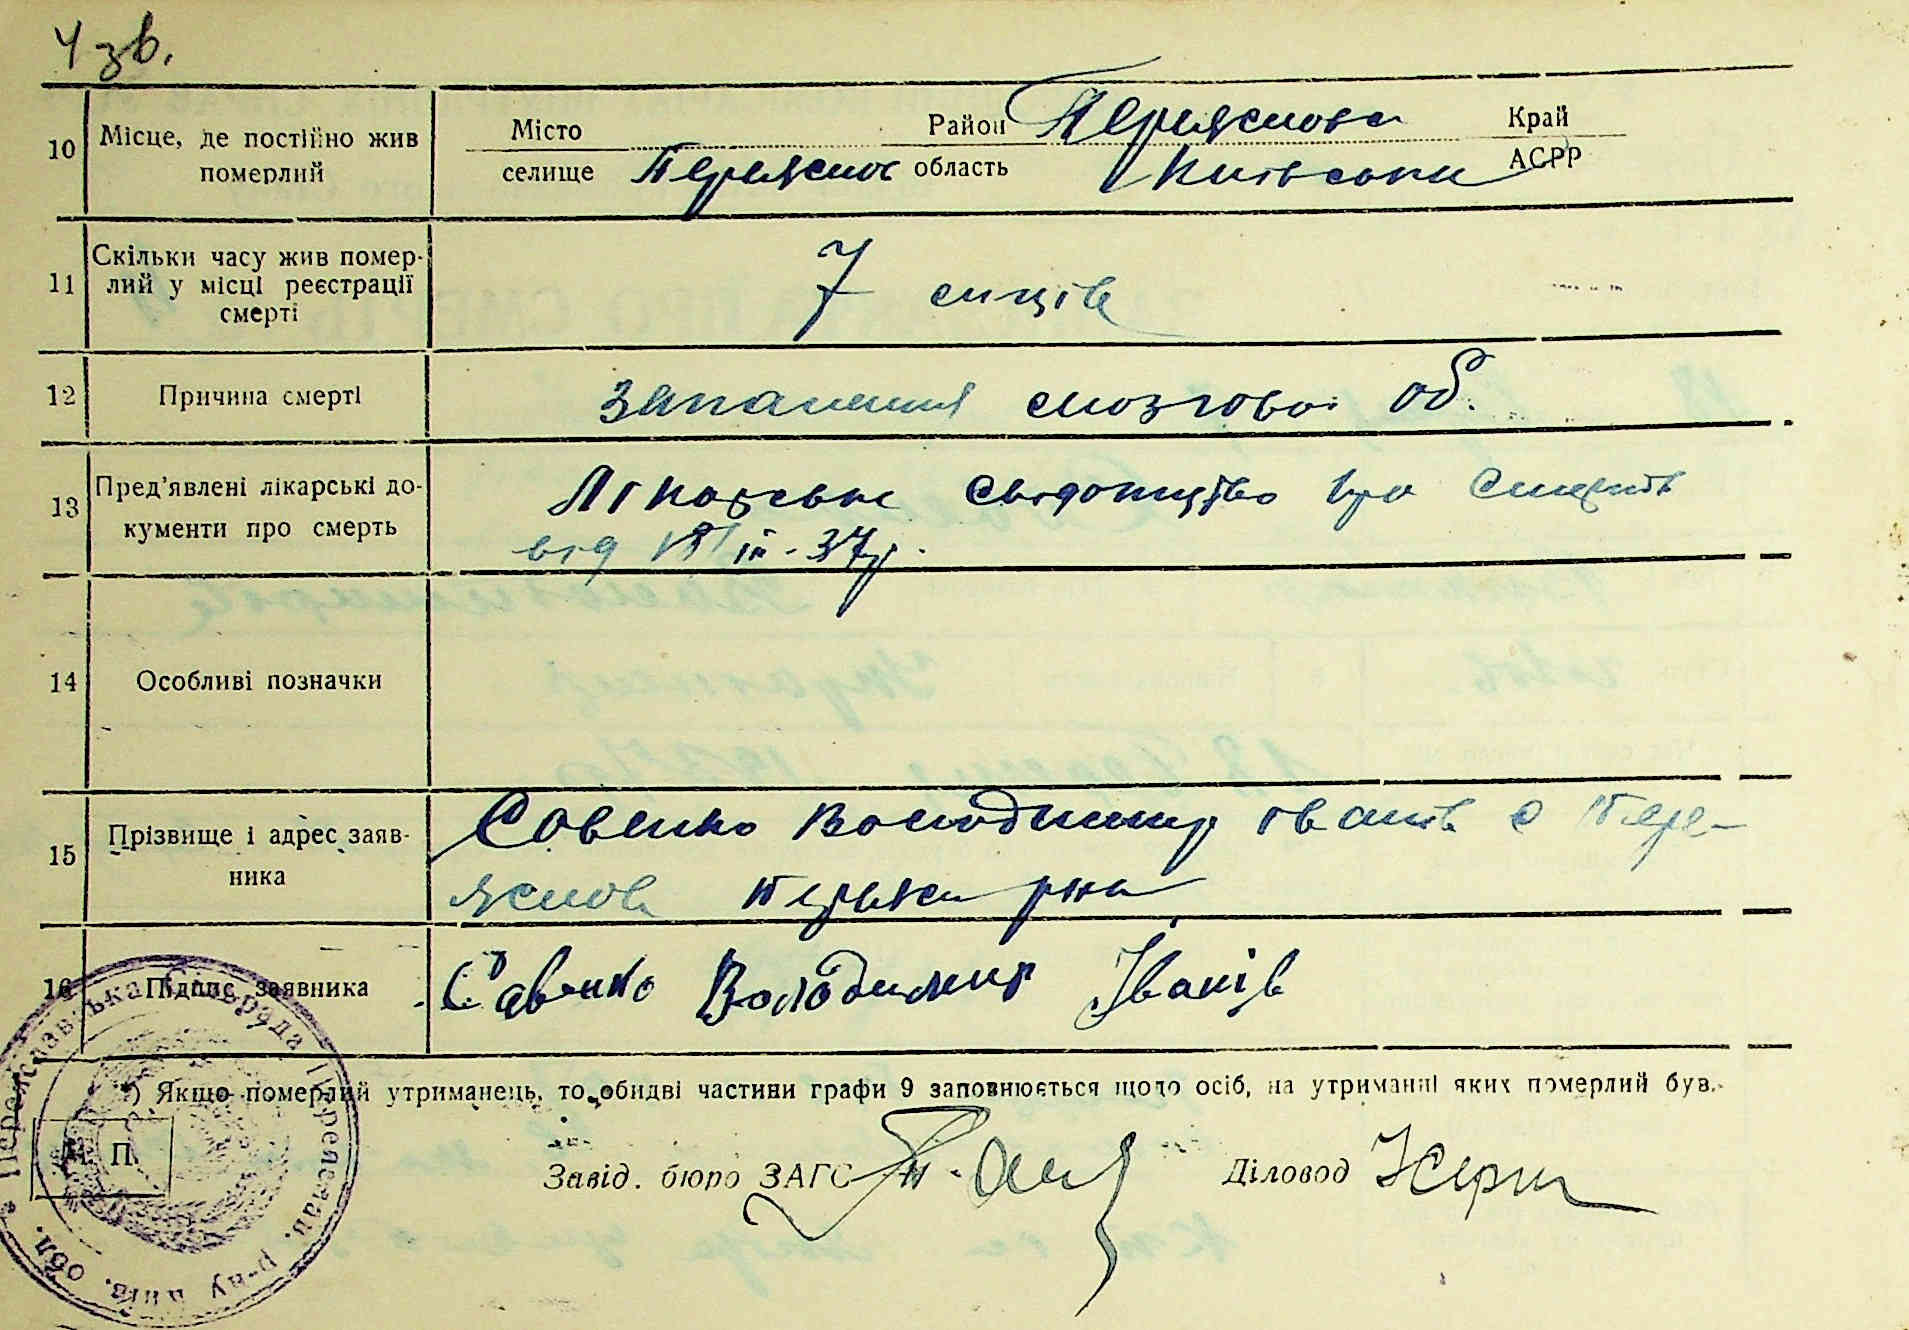 4 зв.
10 Місце, де постійно жив померлий
Місто Район Переяслова Край
селище Переяслов область Київська АСРР
11 Скільки часу жив помер-
лий у місці реєстрації
смерті
7 місців
12 Причина смерті запалення мозгової об.
13 Пред'явлені лікарські до-
кументи про смерть
Лікарське свідоцтво про смерть
від III-37р.
14 Особливі позначки
15 Прізвище і адрес заяв-
ника
Савенко Володимир Іванів с Пере-
яслов
16 Підпис заявника Савенко Володимир Іванів
*) Якщо померлий утриманець, то обидві частини графи 9 заповнюється щодо осіб, на утриманні яких померлий був.
М. П.
Завід. бюро ЗАГС Діловод
Переяславська Переяслав. р-ну Київ. обл.